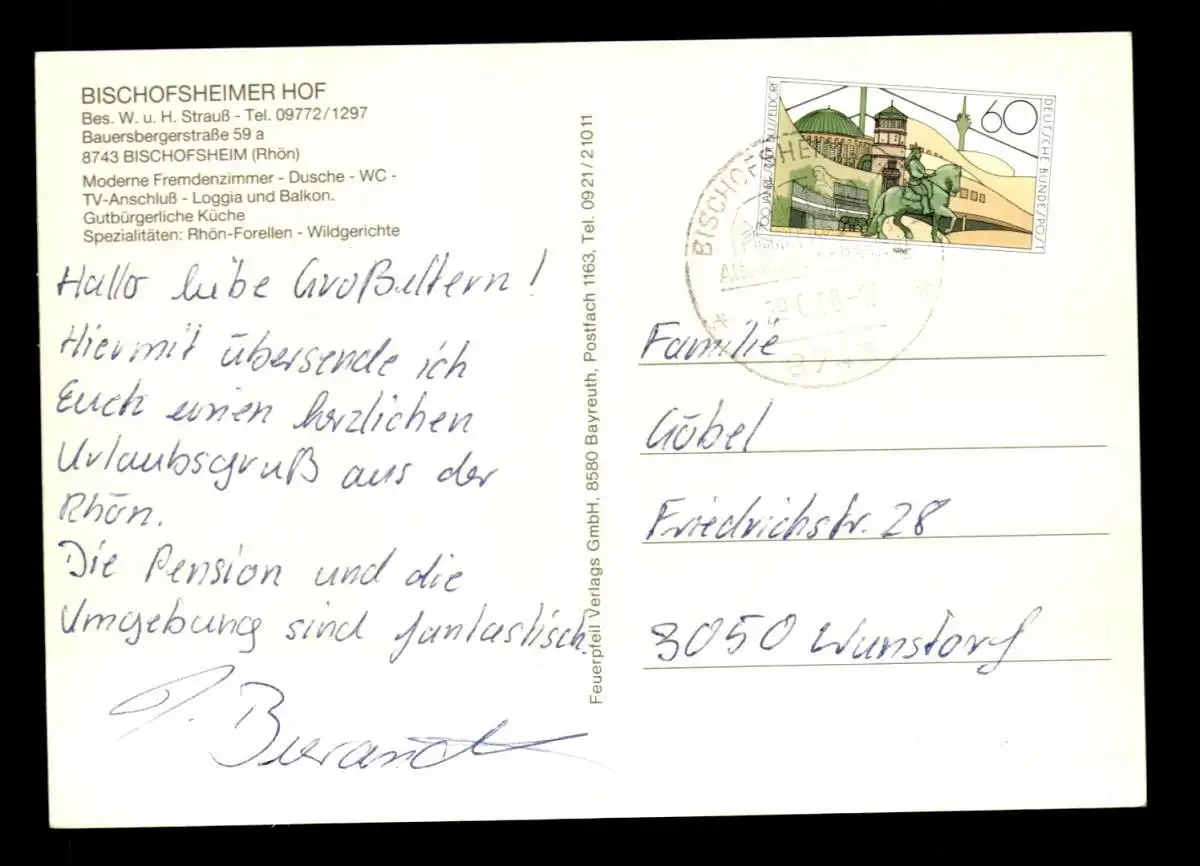 BISCHOFSHEIMER HOF
Bes. W. u. H. Strauß - Tel. 09772/1297
Bauersbergerstraße 59 a
8743 BISCHOFSHEIM (Rhön)
Moderne Fremdenzimmer - Dusche - WC -
TV-Anschluß - Loggia und Balkon.
Gutbürgerliche Küche
Spezialitäten: Rhön-Forellen - Wildgerichte
Hallo liebe Großeltern!
Hiermit übersende ich
Euch einen herzlichen
Urlaubsgruß aus der
Rhön.
Die Pension und die
Umgebung sind fantastisch.
Feuerpfeil Verlags GmbH, 8580 Bayreuth, Postfach 1163, Tel. 0921/21011
700 JAHRE STADT DÜSSELDORF
60
DEUTSCHE BUNDESPOST
1988
BISCHOFSHEI
8743
Familie
Göbel
Friedrichstr. 28
3050 Wunstorf